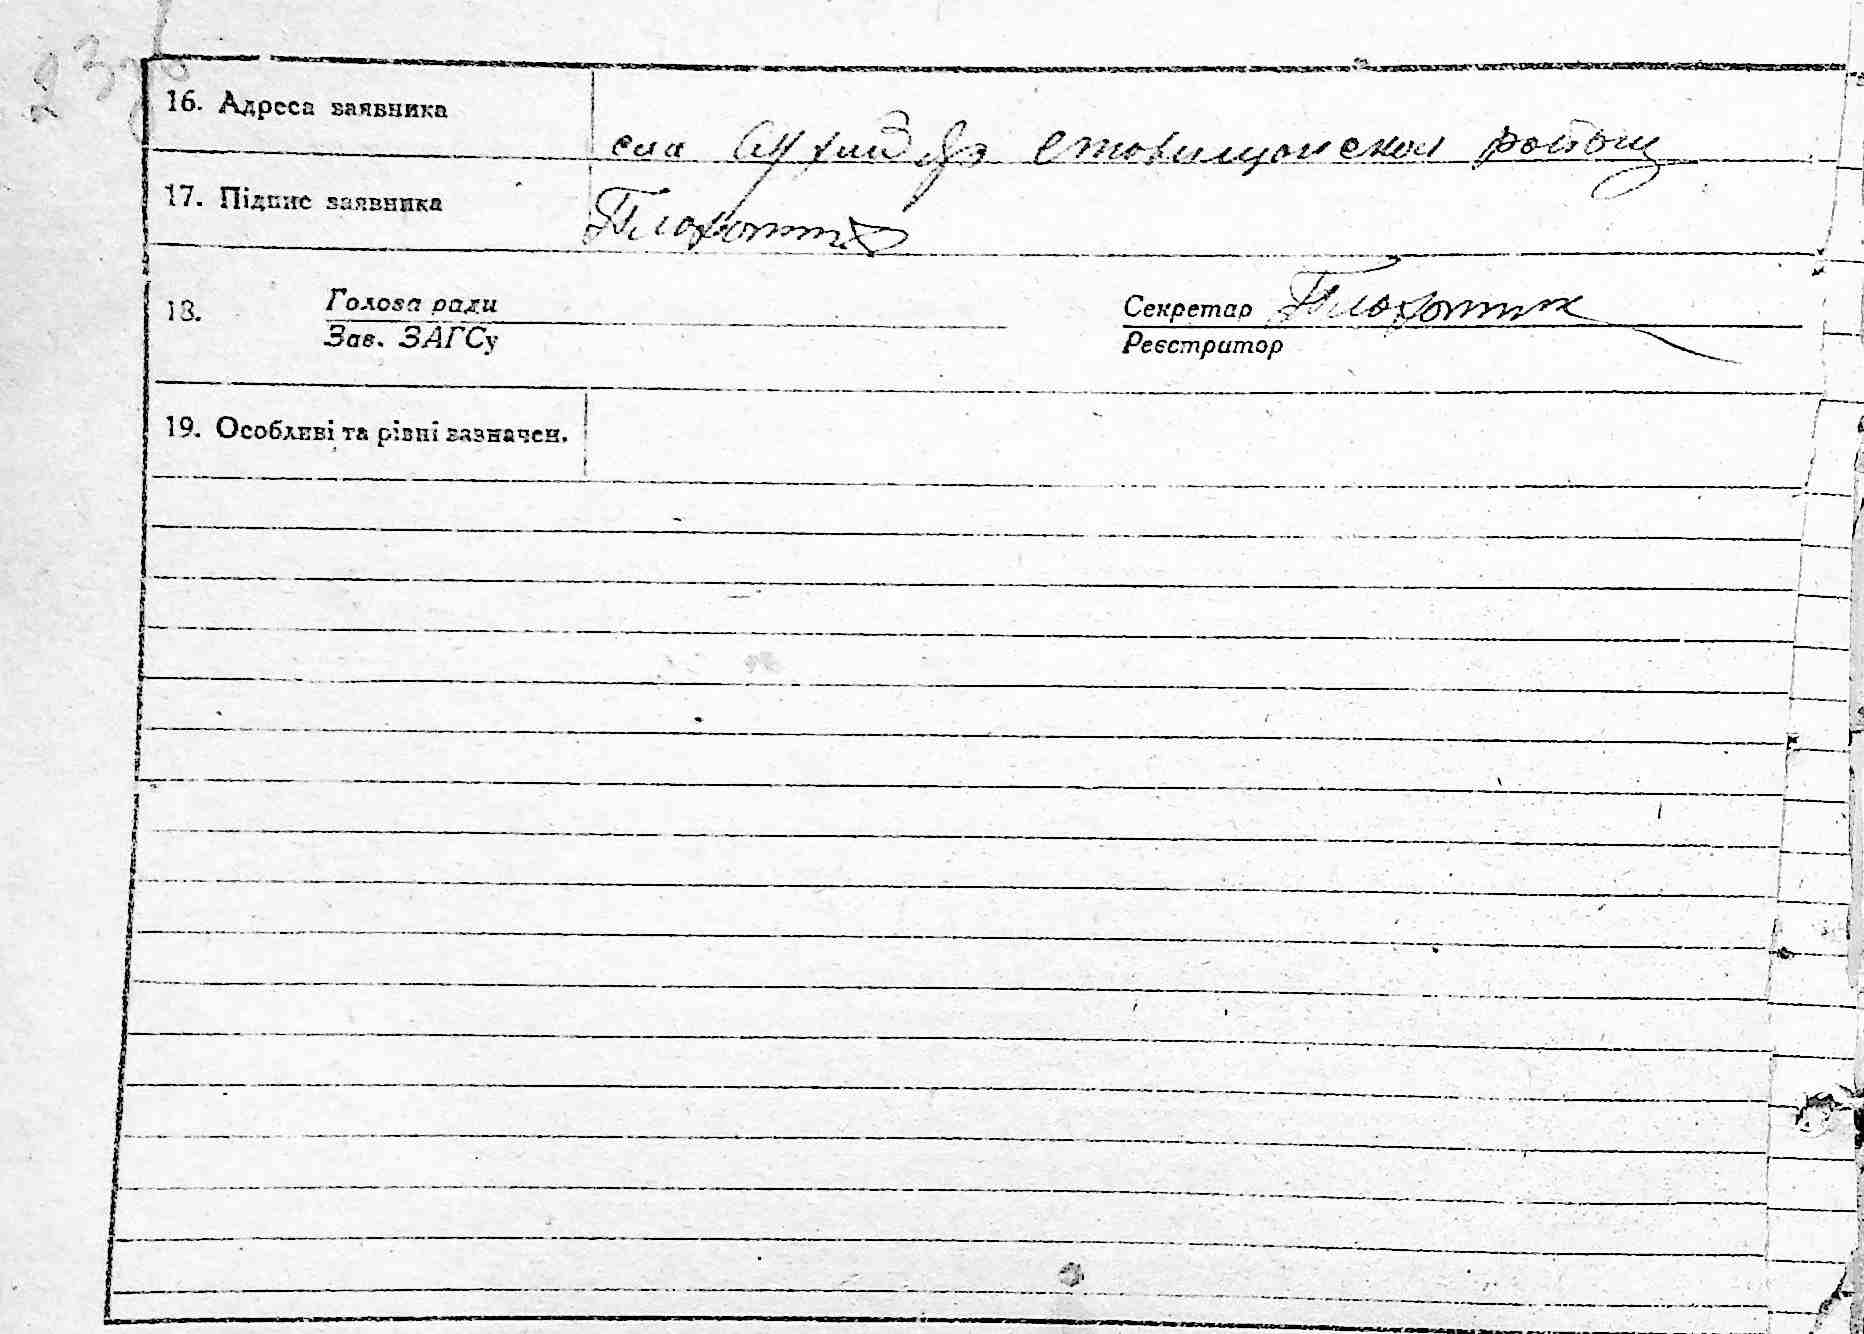 23
16. Адреса заявника
села Сухий Яр Ставищанского району
17. Підпис заявника
Плахотник
18. Голова ради
Зав. ЗАГСу
Секретар Плахотник
Реєстратор
19. Особливі та різні зазначен.